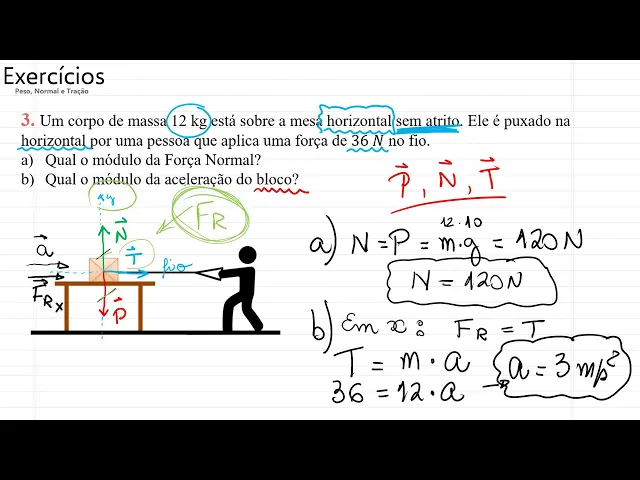 Exercícios
Peso, Normal e Tração
3. Um corpo de massa 12 kg está sobre a mesa horizontal sem atrito. Ele é puxado na
horizontal por uma pessoa que aplica uma força de 36 N no fio.
a) Qual o módulo da Força Normal?
b) Qual o módulo da aceleração do bloco?
P, N, T
y
FR
N
T
fio
a
FR x
P
12·10
a) N = P = m·g = 120 N
N = 120 N
b) Em x: FR = T
T = m · a
36 = 12 · a → a = 3 m/s²